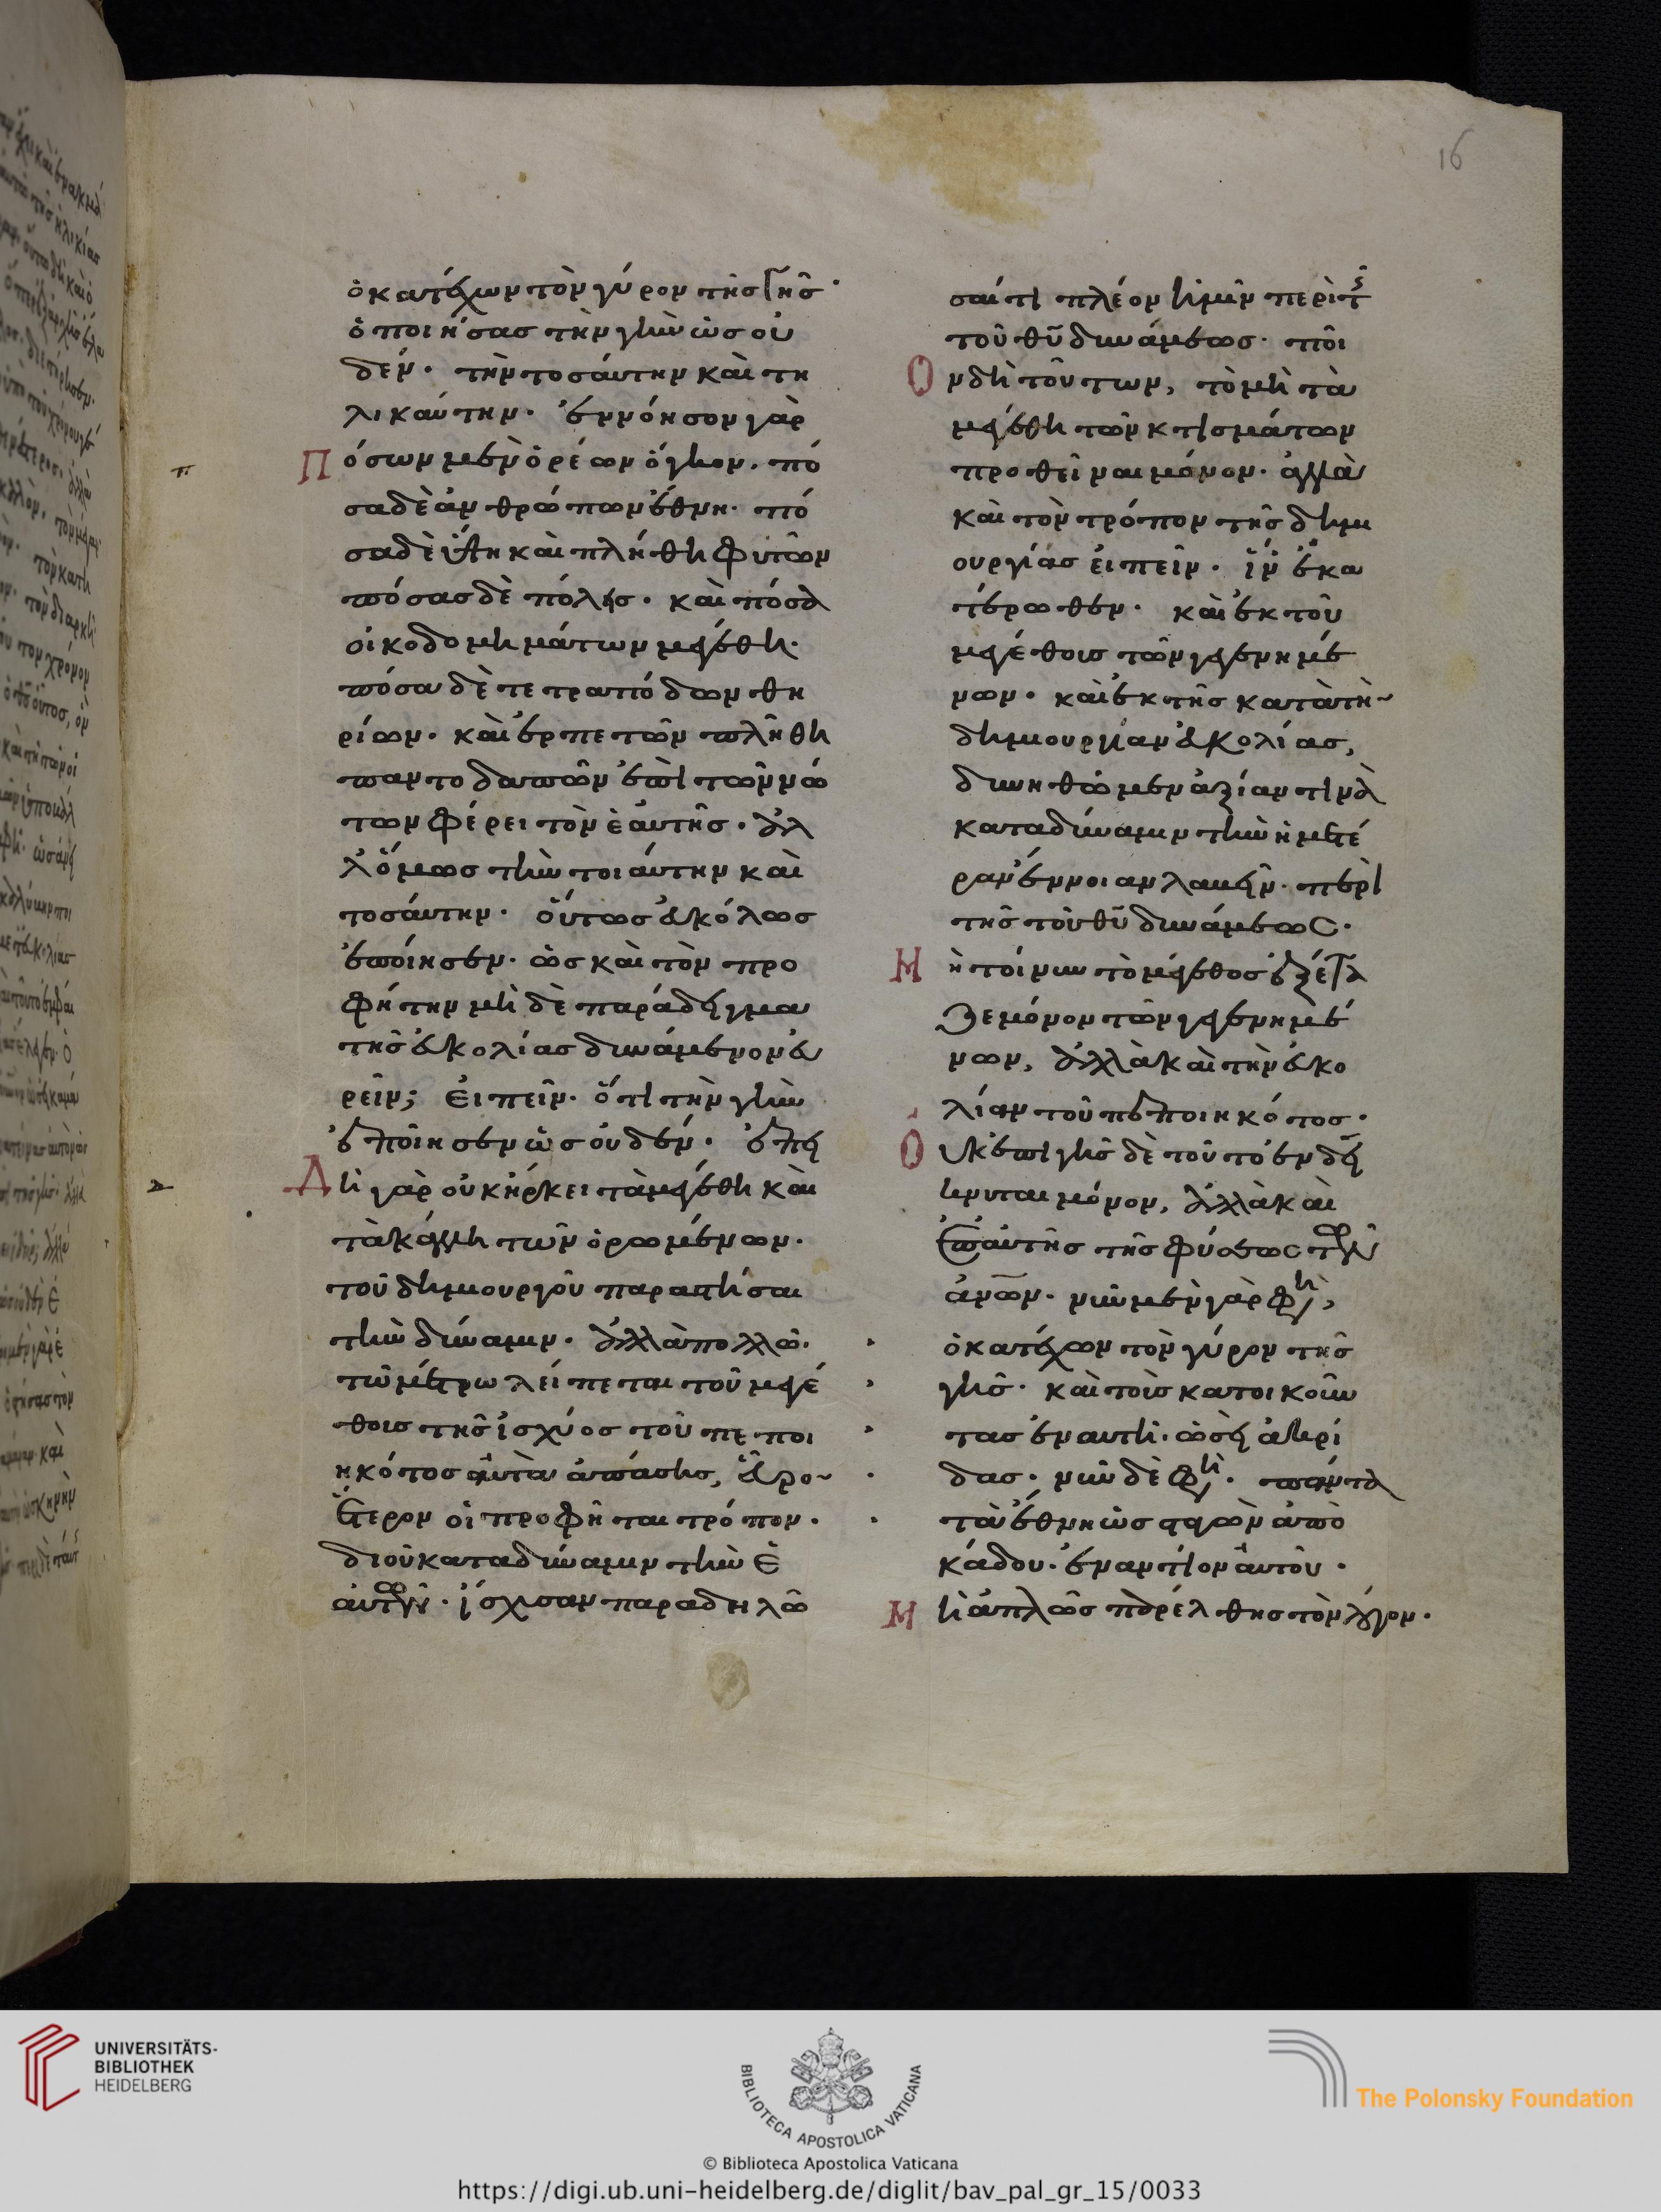 16
ὁ κατέχων τὸν γύρον τῆς γῆς·
ὁ ποιήσας τὴν γῆν ὡς οὐ
δέν· τὴν τοσαύτην καὶ τη
λικαύτην· ἐννόησον γὰρ
Πόσων μὲν ὀρέων ὄγκον· πό
σα δὲ ἀνθρώπων ἔθνη· πό
σα δὲ εἴδη καὶ πλήθη φυτῶν
πόσας δὲ πόλεις· καὶ πόσα
οἰκοδομημάτων μεγέθη·
πόσα δὲ τετραπόδων θη
ρίων· καὶ ἑρπετῶν πλήθη
παντοδαπῶν ἐπὶ τῶν νώ
των φέρει τῶν ἑαυτῆς· ἀλ
λ' ὅμως τὴν τοιαύτην καὶ
τοσαύτην· οὕτως εὐκόλως
ἐποίησεν· ὡς καὶ τὸν προ
φήτην μὴ δὲ παράδειγμα
τῆς εὐκολίας δυνάμενον εὑ
ρεῖν; εἰπεῖν· ὅτι τὴν γῆν
ἐποίησεν ὡς οὐδέν· ἐπει
Δὴ γὰρ οὐκ ἤρκει τὰ μεγέθη καὶ
τὰ κάλλη τῶν ὁρωμένων·
τοῦ δημιουργοῦ παραστῆσαι
τὴν δύναμιν· ἀλλὰ πολλῶ
τῶ μέτρω λείπεται τοῦ μεγέ
θους τῆς ἰσχύος τοῦ πεποι
ηκότος αὐτὰ ἁπάσης, εὗρον
ἕτερον οἱ προφῆται τρόπον·
δι' οὗ κατὰ δύναμιν τὴν ἑ
αυτῶν· ἴσχυσαν παραδηλῶ
σαί τι πλέον ἡμῖν περὶ τῆς
τοῦ θυ δυνάμεως· ποῖ
Ον δὴ τοῦτων, τὸ μὴ τὰ
μεγέθη τῶν κτισμάτων
προθεῖναι μόνον· ἀλλὰ
καὶ τὸν τρόπον τῆς δημι
ουργίας εἰπεῖν· ἵν' ἑκα
τέρωθεν· καὶ ἐκ τοῦ
μεγέθους τῶν γεγενημέ
νων· καὶ ἐκ τῆς κατὰ τὴν
δημιουργίαν εὐκολίας,
δυνηθῶμεν ἀξίαν τινὰ
κατὰ δύναμιν τὴν ἡμετέ
ραν ἔννοιαν λαβεῖν· περὶ
τῆς τοῦ θυ δυνάμεως·
Μὴ τοίνυν τὸ μέγεθος ἐξέτα
ζε μόνον τῶν γεγενημέ
νων, ἀλλὰ καὶ τὴν εὐκο
λίαν τοῦ πεποιηκότος·
Οὐκ ἐπὶ γῆς δὲ τοῦτο ἐνδεί
κνυται μόνον, ἀλλὰ καὶ
ἐπ' αὐτῆς τῆς φύσεως τῶν
ἀνων· νῦν μὲν γὰρ φη,
ὁ κατέχων τὸν γύρον τῆς
γῆς· καὶ τοὺς κατοικοῦν
τας ἐν αυτῆ· ὡσεὶ ἀκρί
δας· νῦν δὲ φη· πάντα
τὰ ἔθνη ὡς σταγὼν ἀπὸ
κάδου· ἐναντίον αὐτοῦ·
Μὴ ἁπλῶς παρέλθης τὸν λόγον·
UNIVERSITÄTS-
BIBLIOTHEK
HEIDELBERG
BIBLIOTECA APOSTOLICA VATICANA
The Polonsky Foundation
© Biblioteca Apostolica Vaticana
https://digi.ub.uni-heidelberg.de/diglit/bav_pal_gr_15/0033